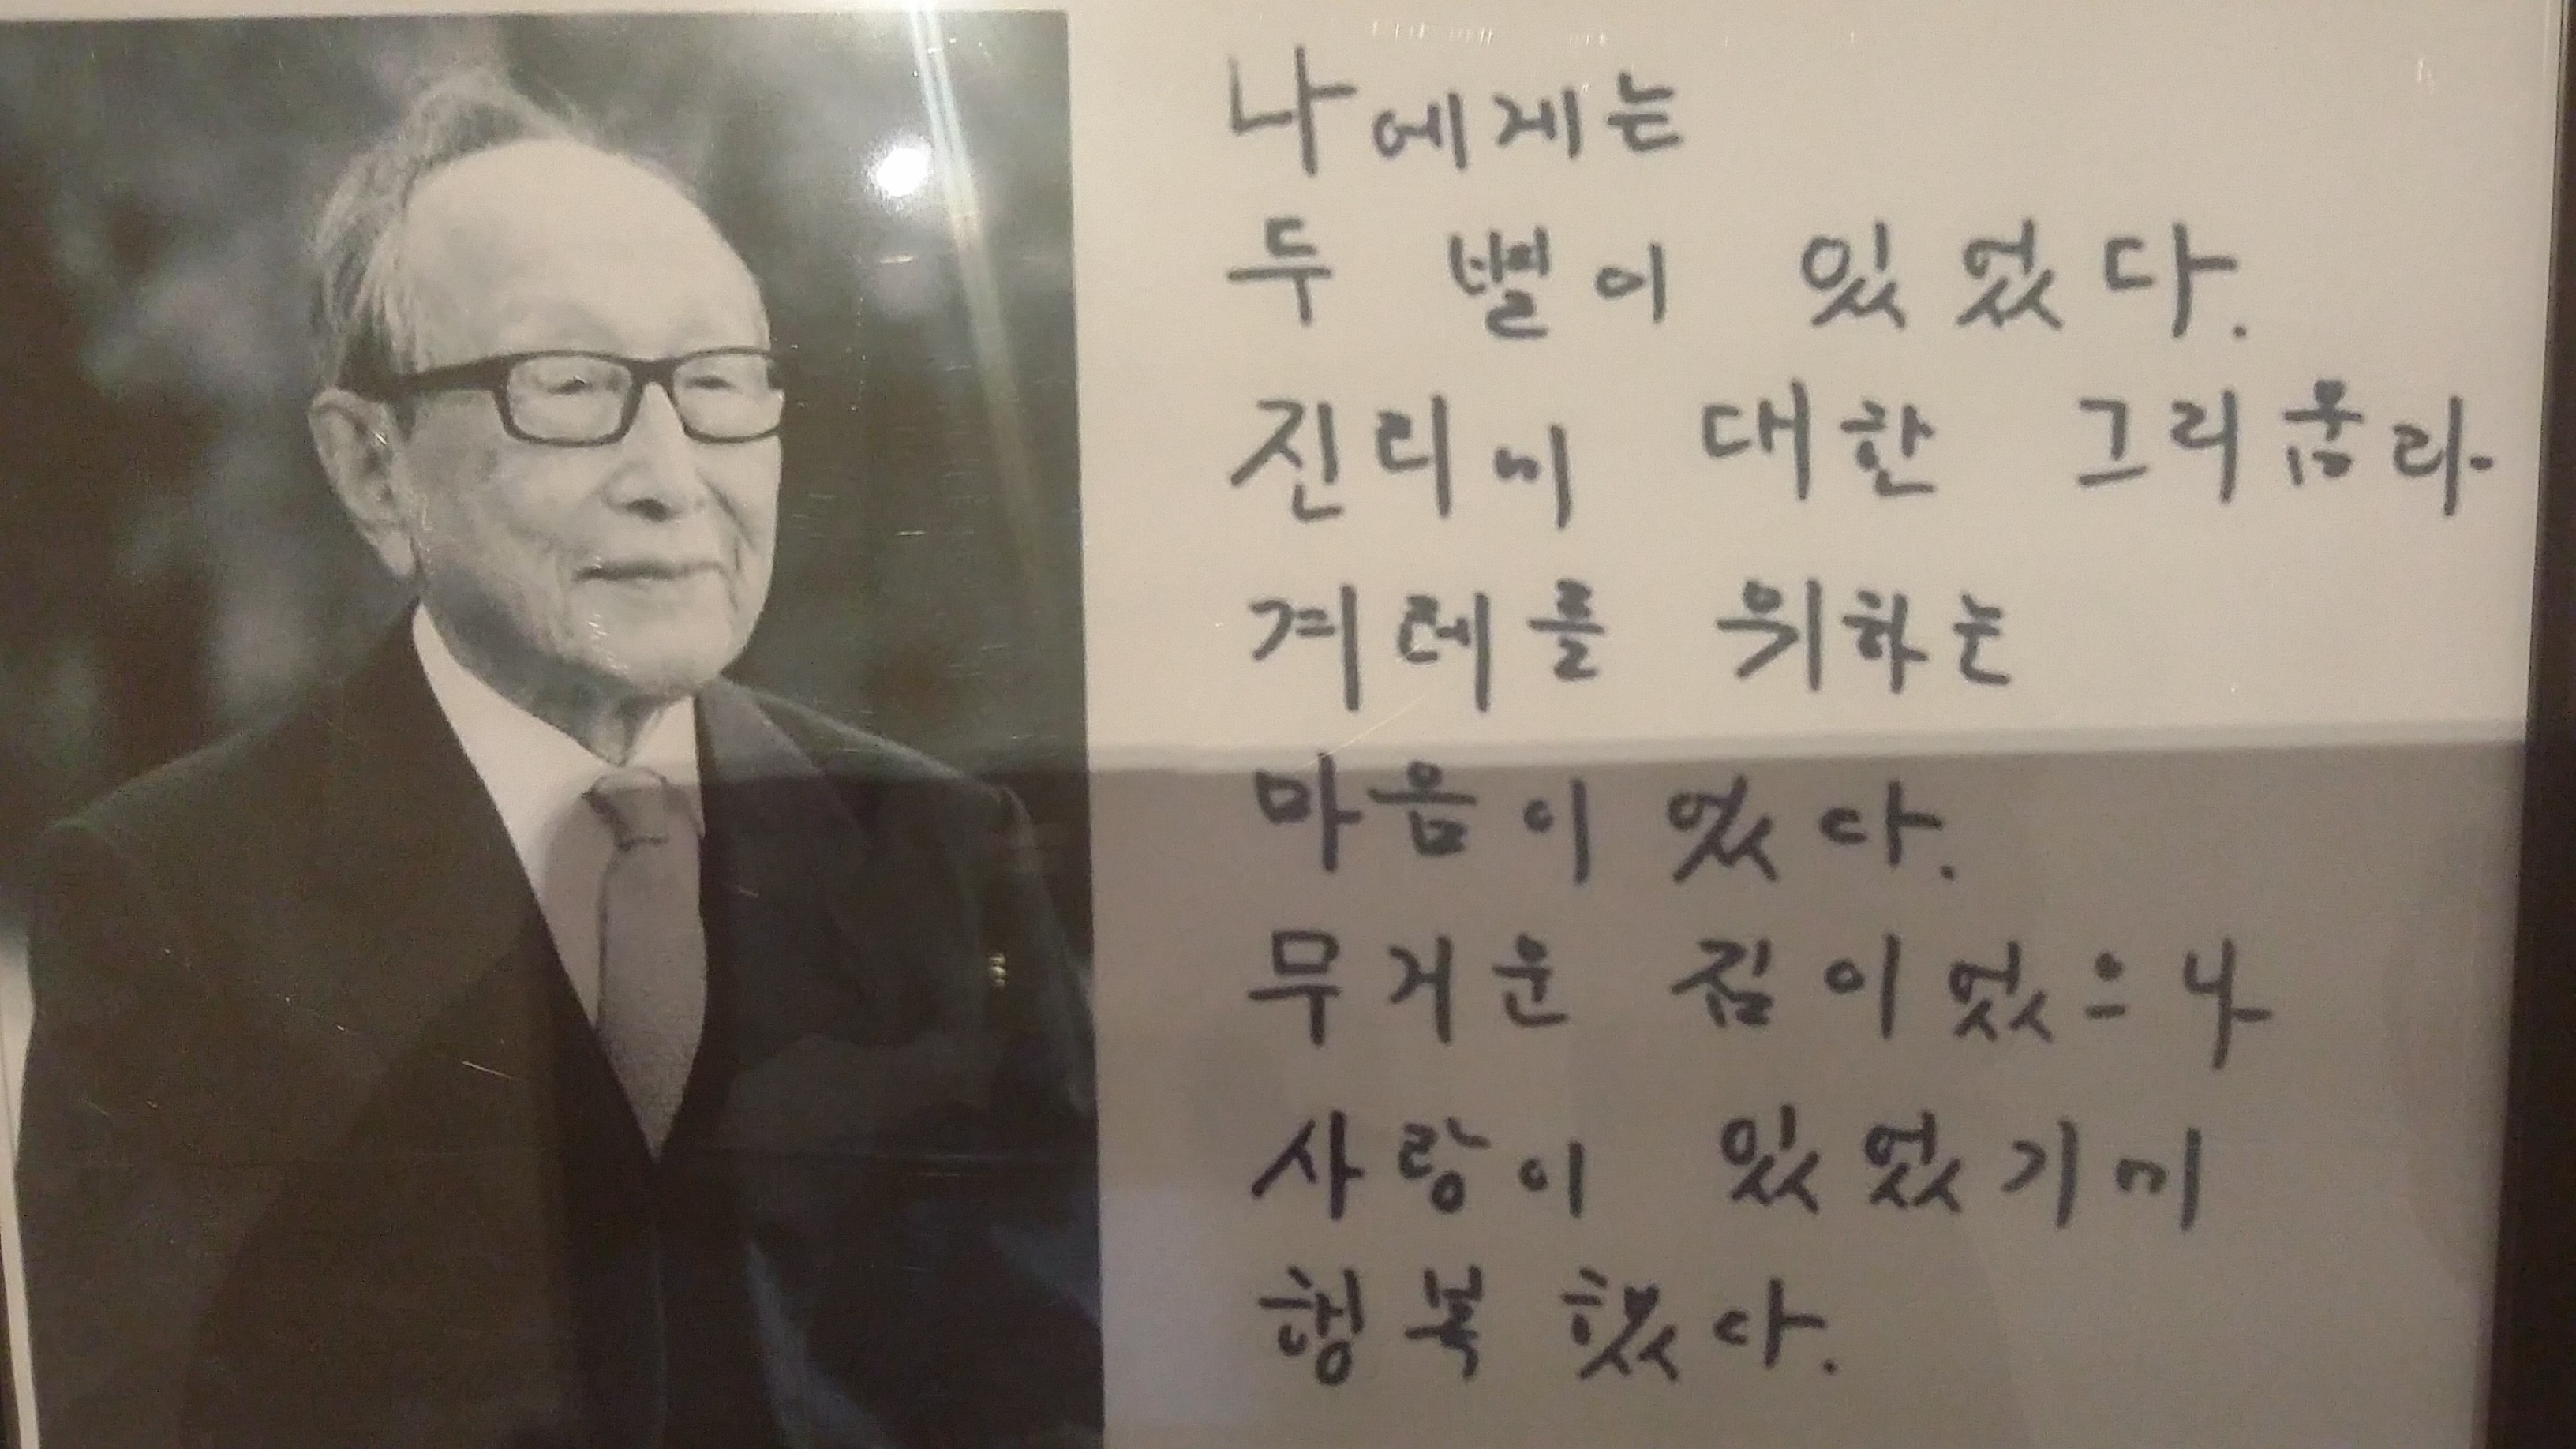 나에게는
두 별이 있었다.
진리에 대한 그리움과
겨레를 위하는
마음이었다.
무거운 짐이었으나
사랑이 있었기에
행복했다.